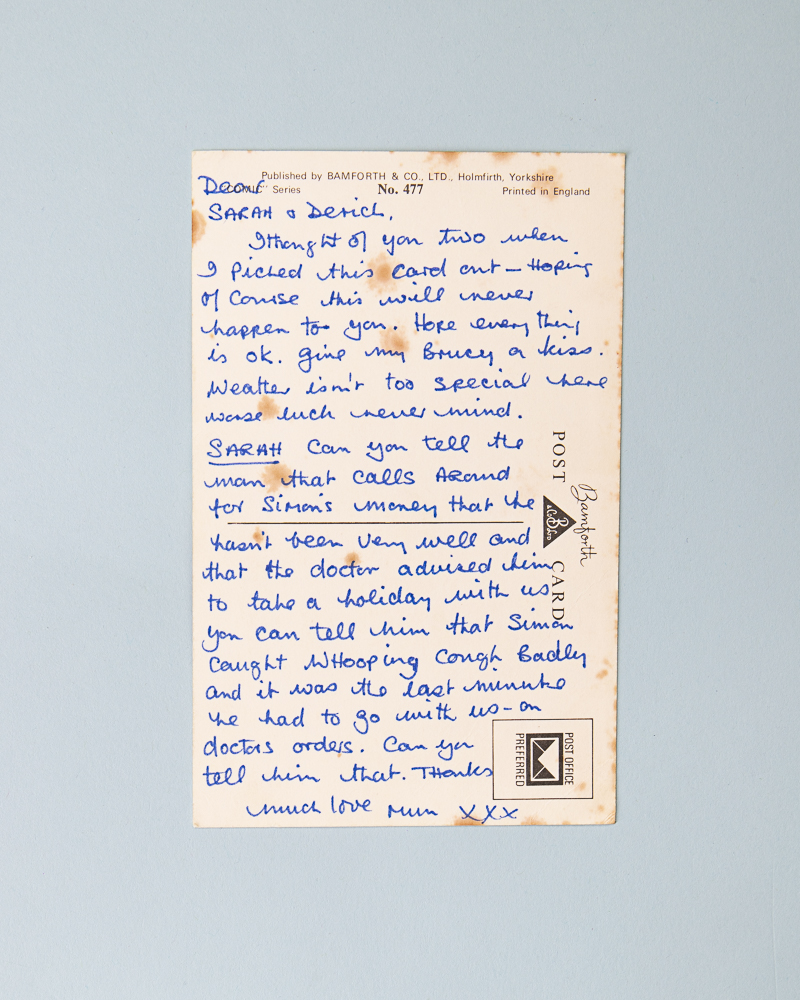 Published by BAMFORTH & CO., LTD., Holmfirth, Yorkshire
"COMIC" Series No. 477 Printed in England
Dear
SARAH & Derick,
I thought of you two when
I Picked this Card out - Hoping
of Course this will never
happen to you. Hope everything
is ok. Give my Brucy a kiss.
Weather isn't too special here
worse luck never mind.
SARAH Can you tell the
man that calls Around
for Simon's money that he
hasn't been very well and
that the doctor advised him
to take a holiday with us
you can tell him that Simon
Caught WHooping Cough Badly
and it was the last minute
he had to go with us - on
doctors orders. Can you
tell him that. THanks
much love Mum XXX
POST CARD
Bamforth
B
& Co Ltd
POST OFFICE
PREFERRED